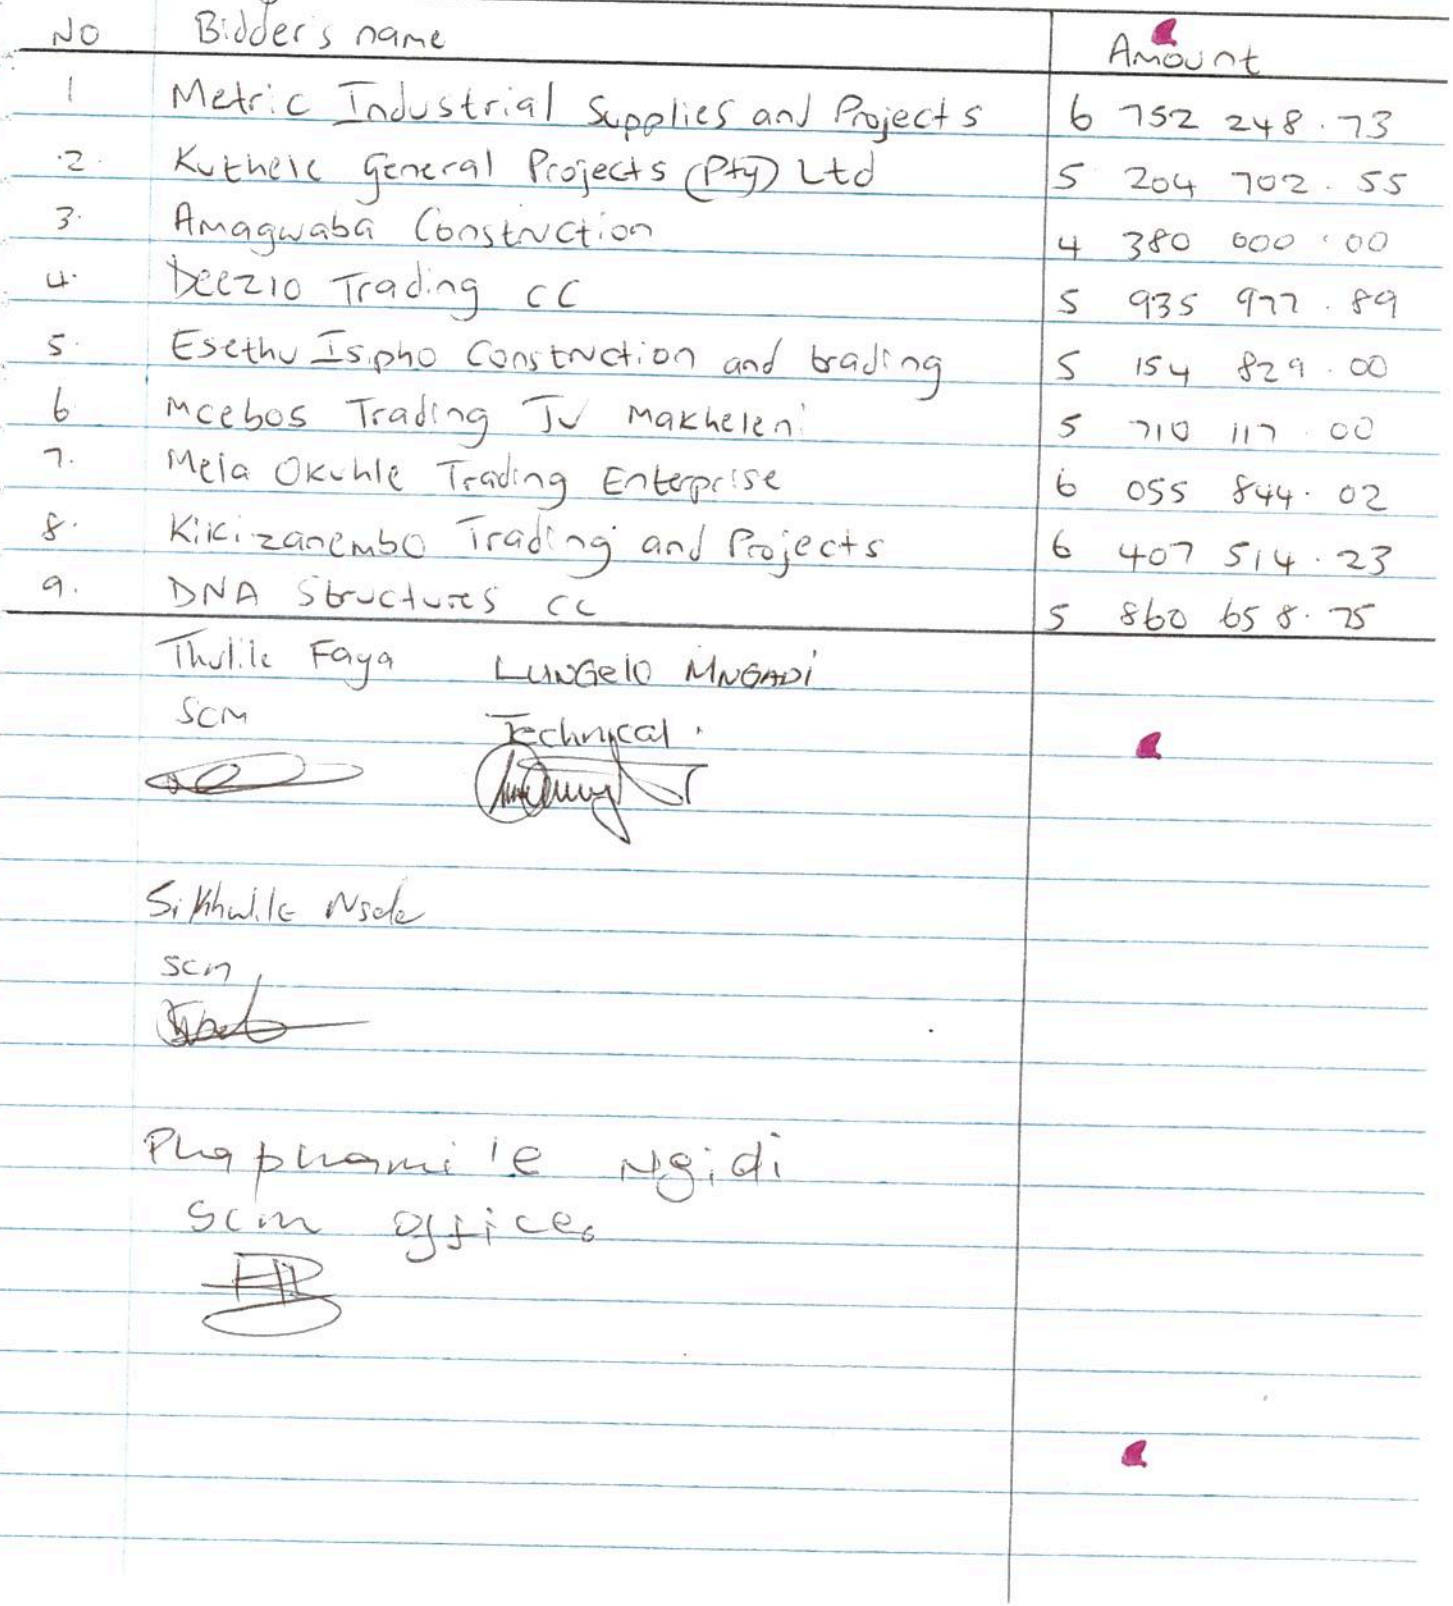 No Bidder's name Amount
1 Metric Industrial Supplies and Projects 6 752 248.73
2. Kuthele General Projects (Pty) Ltd 5 204 702.55
3. Amagwaba Construction 4 380 000.00
4. Deezlo Trading CC 5 935 977.89
5. Esethu Isipho Construction and trading 5 154 829.00
6 Mcebos Trading JV Makheleni 5 710 117 00
7. Mela Okuhle Trading Enterprise 6 055 844.02
8. Kikizanembo Trading and Projects 6 407 514.23
9. DNA Structures CC 5 860 658.75
Thulile Faya LUNGelo MNGADI
SCM Technical.
Sikhulile
SCM
Phaphamile Ngidi
SCM officer